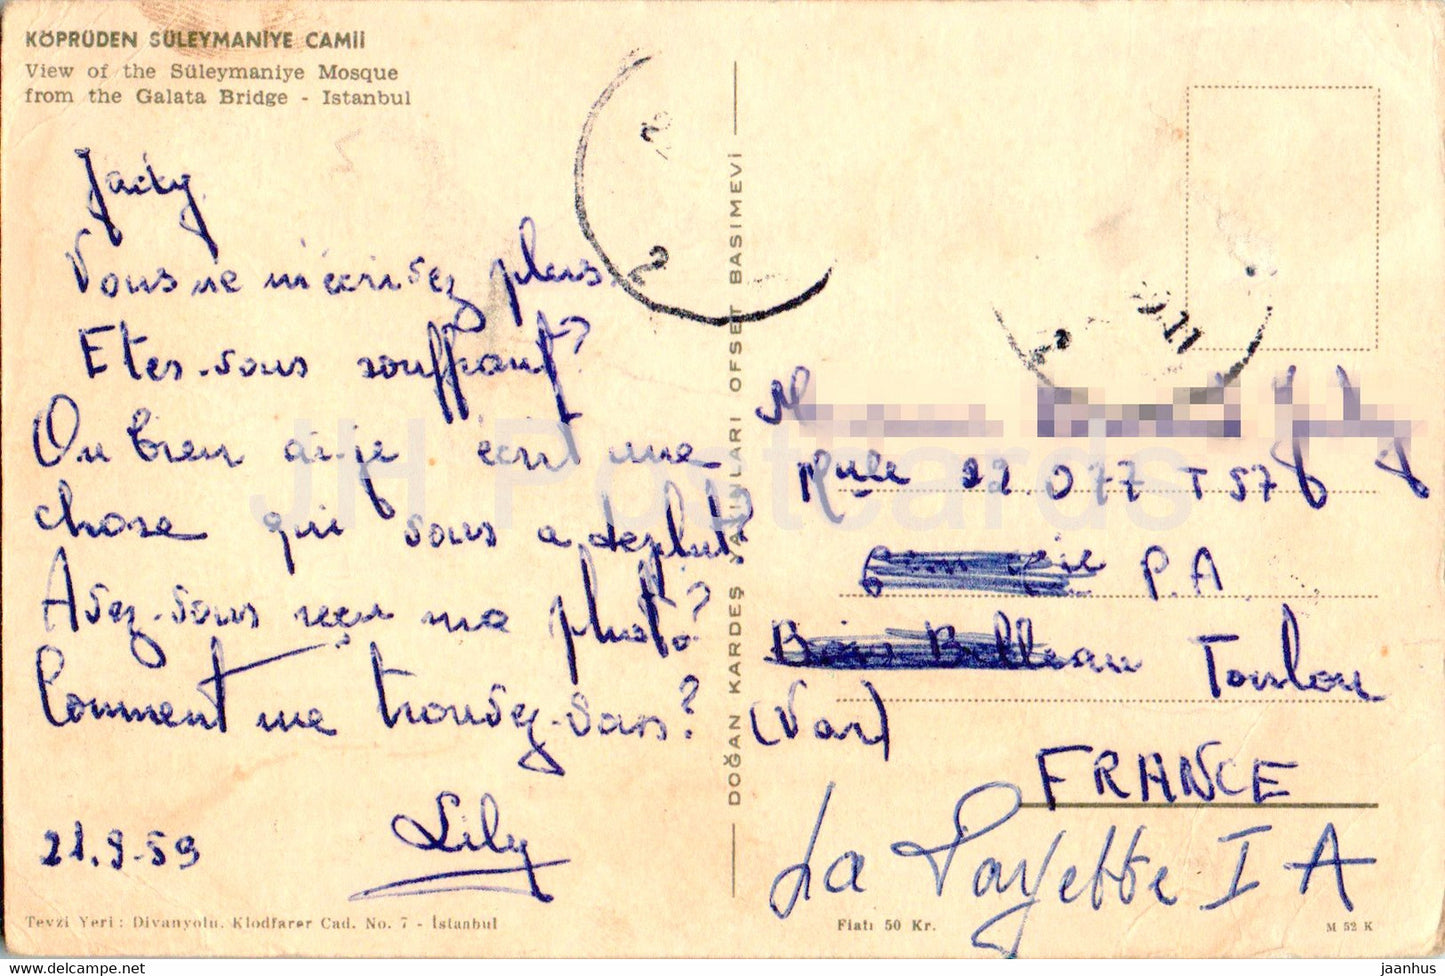 KÖPRÜDEN SÜLEYMANİYE CAMİİ
View of the Süleymaniye Mosque
from the Galata Bridge - Istanbul
Jacky
Vous ne m'écrivez plus.
Etes-vous souffrant?
Ou bien ai-je écrit une
chose qui vous a déplut?
Avez-vous reçu ma photo?
Comment me trouvez-vous?
Lily
21.9.59
Tevzi Yeri: Divanyolu. Klodfarer Cad. No. 7 - İstanbul
DOĞAN KARDEŞ YAYINLARI OFSET BASIMEVİ
Mule 22.077 T 57
P.A
Bois Belleau Toulon
(Var)
FRANCE
La Fayette I A
Fiatı 50 Kr.
M 52 K
JH Postcards
hippostcard.com/store/jh-postcards
jaanhus